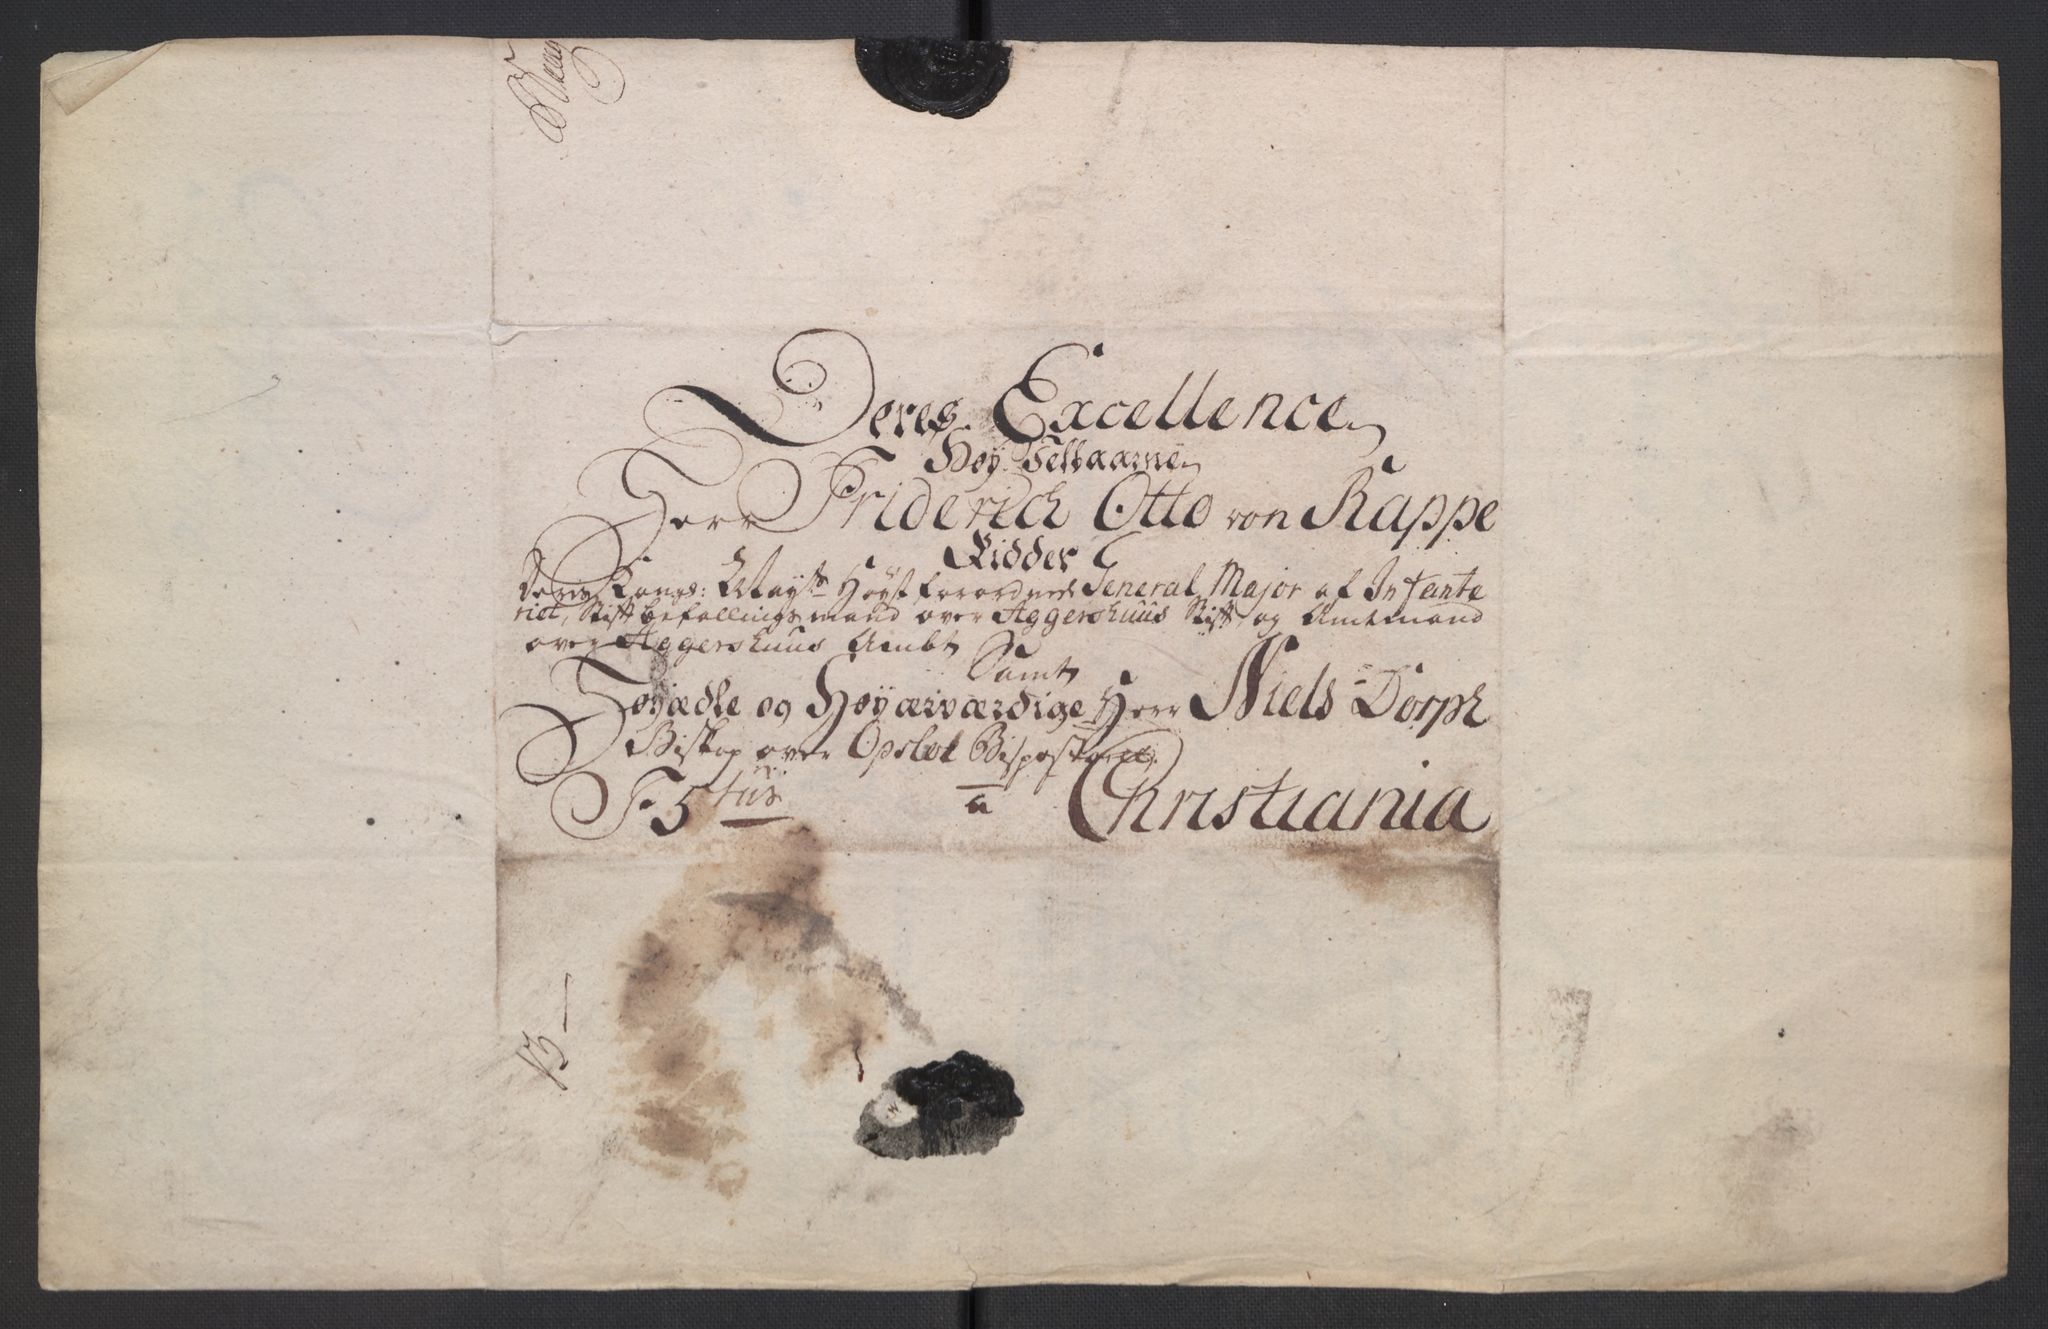 Deres Excellence
Høy Velbaarne
Herr Friderich Otto von Rappe
Ridder
Deris Kongl: Mayts Høyst forordnede General Major af Infante
riet, Stiftbefallingsmand over Aggershuus Stift, og Amtmand
over Aggershuus Ambt
Samt
Høyædle og Høyærværdige Herr Niels Dorph
Biskop over Opsloe Bispestoel
F. 5tus
a Christiania
13